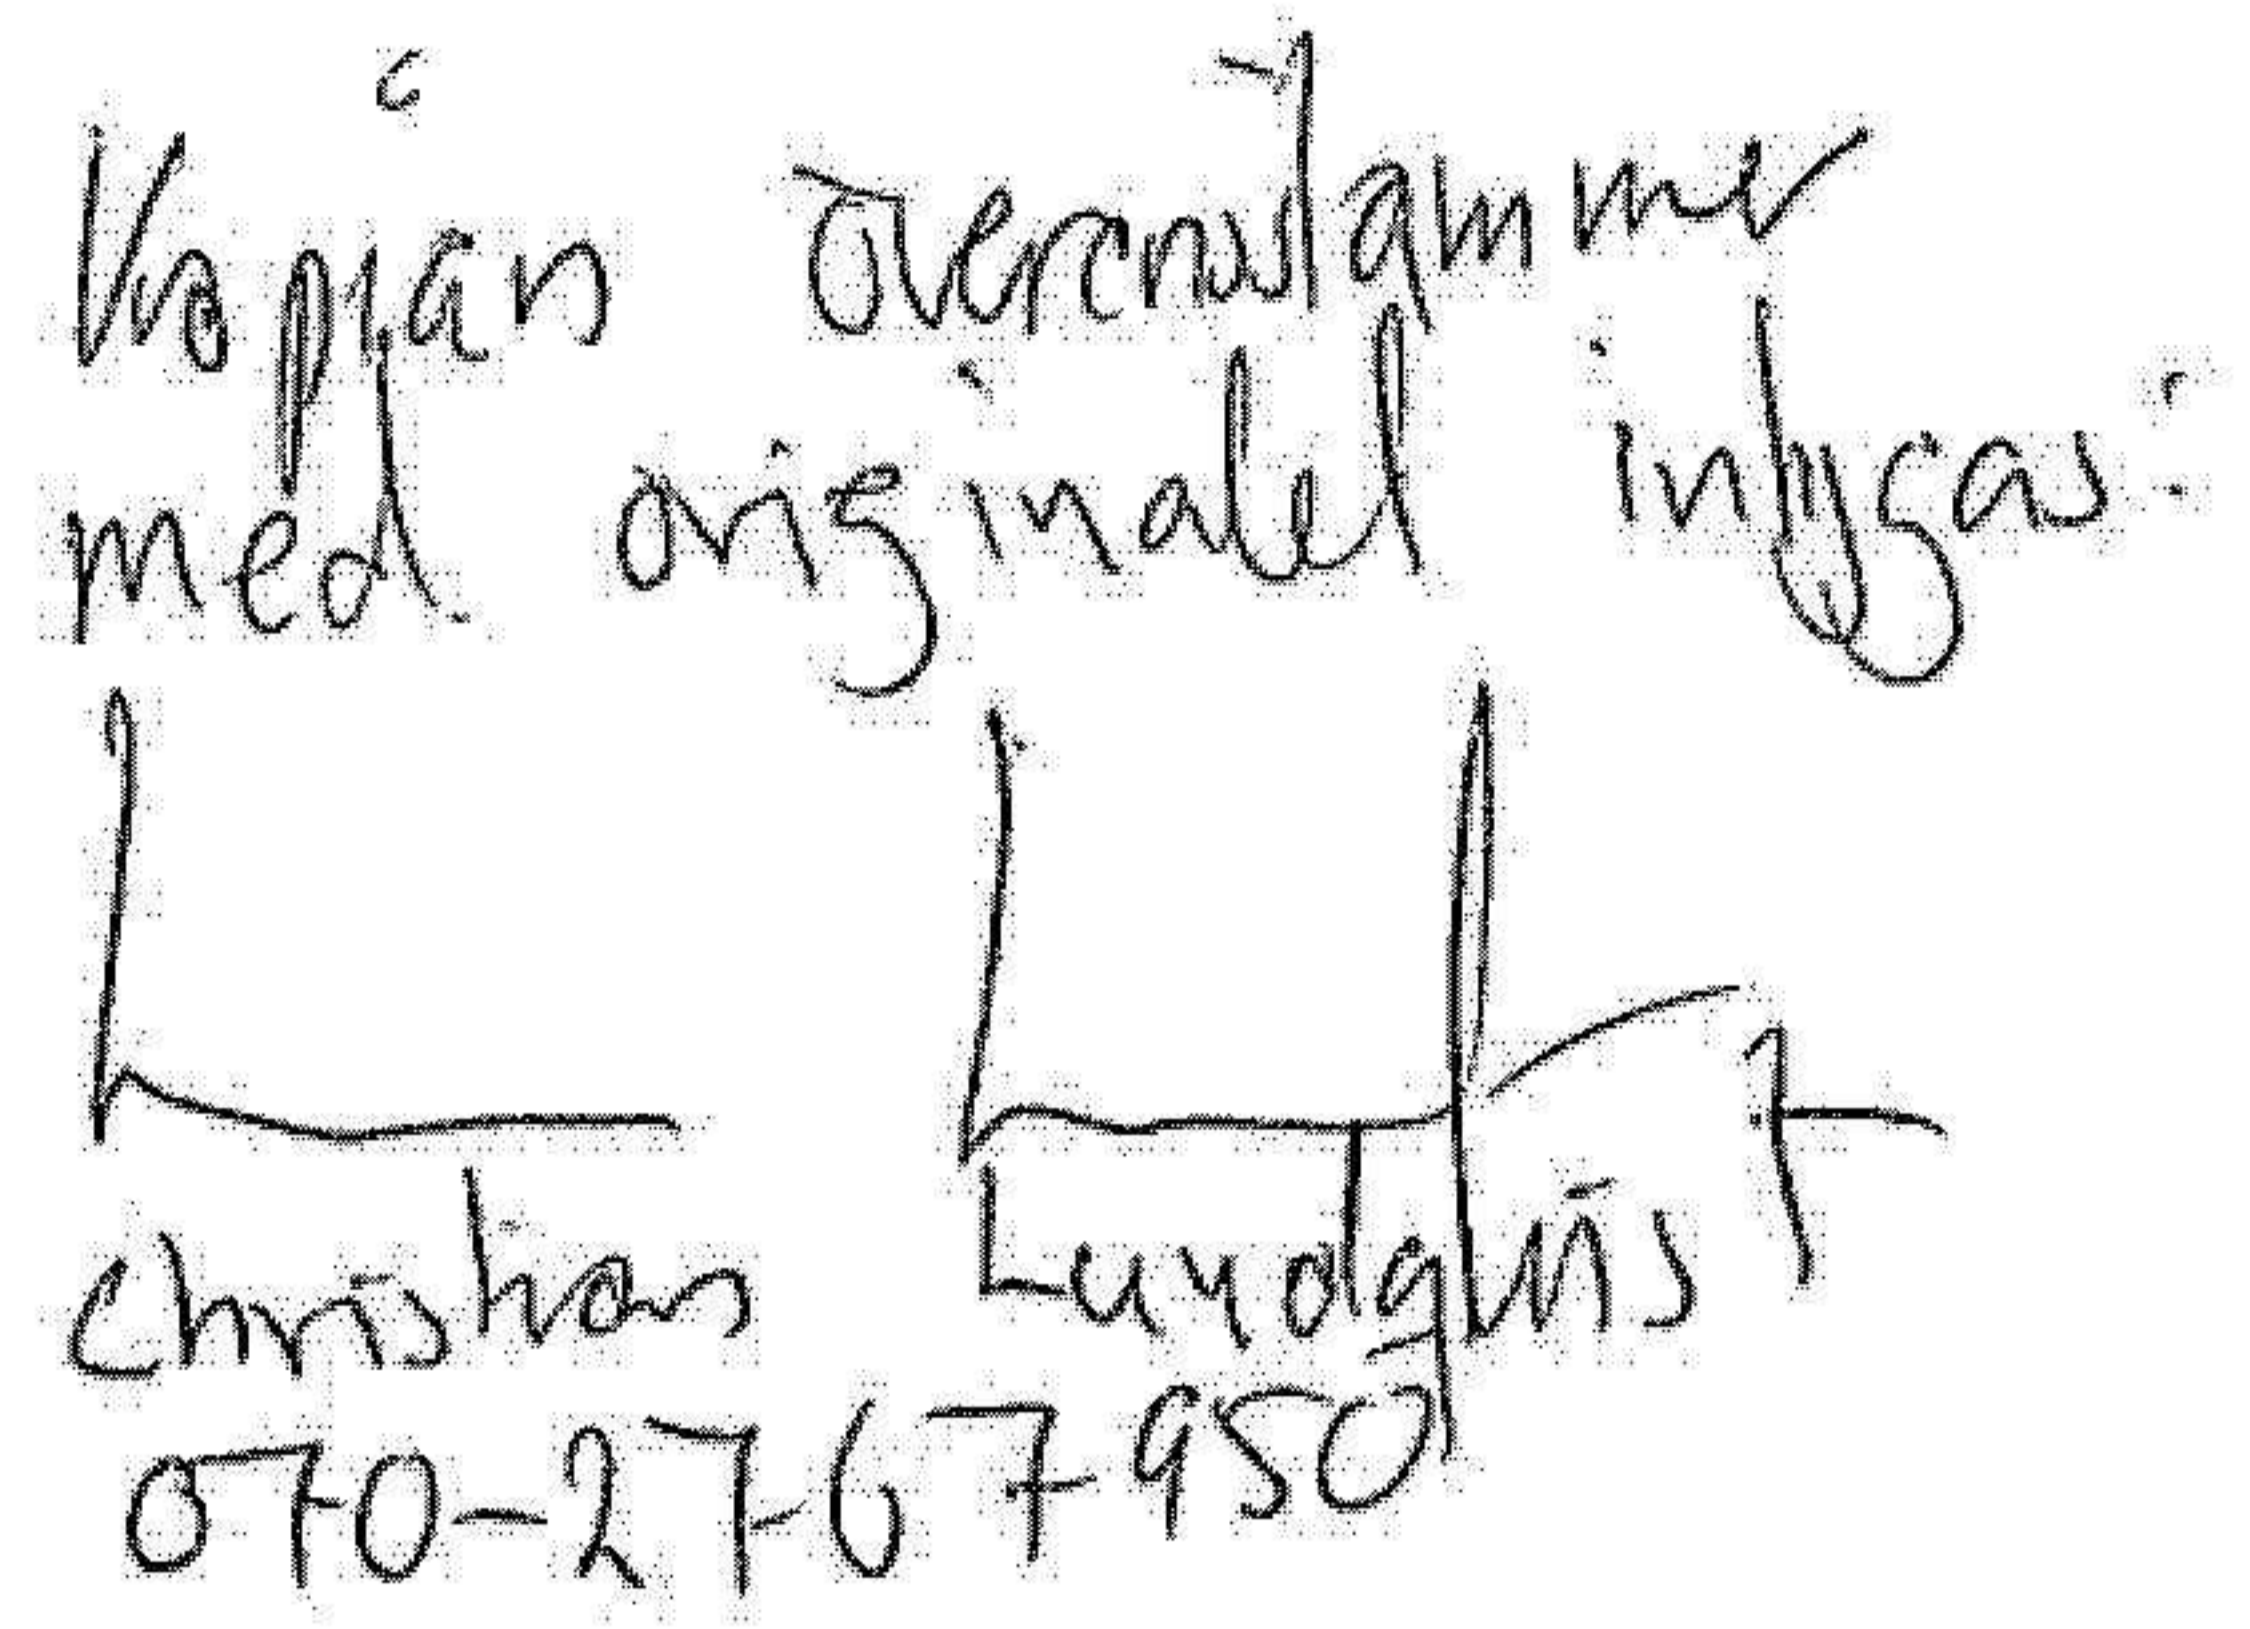 Kopians överensstämmer
med originalet intygas:
Christian Lundqvist
070-27 67 950